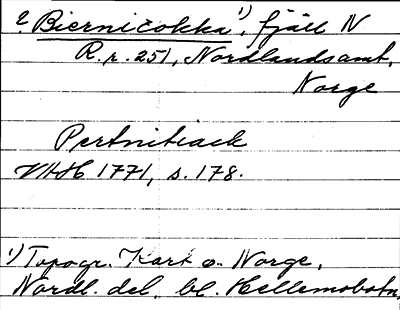 ? Bierničokka ¹⁾, fjäll N
R.r. 251, Nordlandsamt,
Norge
Pertnitiack
VHH 1771, s. 178.
¹⁾ Topogr. Kart o. Norge,
Nordl. del, bl. Hellemobotn.